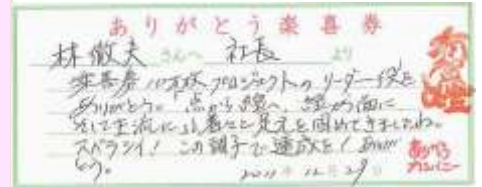 ありがとう楽喜券
林 徹夫 さんへ 社長 より
楽喜券10万枚プロジェクトのリーダー役を
ありがとう。点から線へ、線から面に
そして主流に!着々と足元を固めてきましたね。
スバラシイ!この調子で達成を!ありが
とう。
2011年12月29日
ありがとう
カンパニー